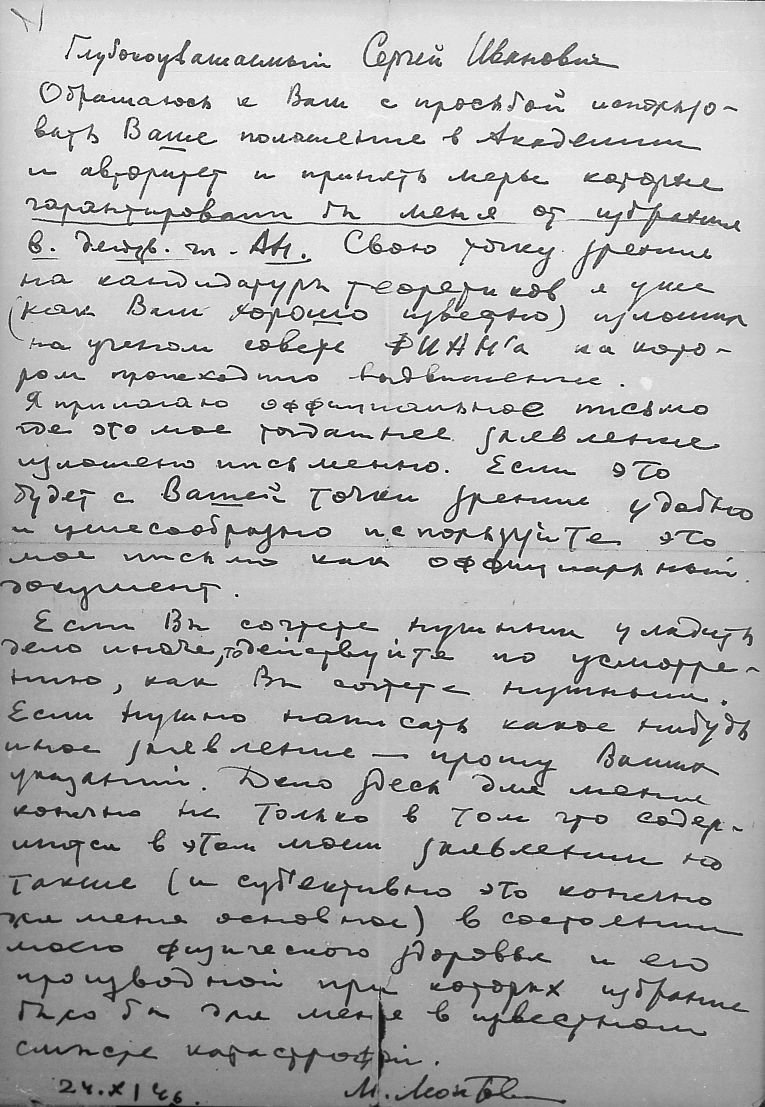 Глубокоуважаемый Сергей Иванович
Обращаюсь к Вам с просьбой использо-
вать Ваше положение в Академии
и авторитет и принять меры которые
гарантировали бы меня от избрания
в действ. чл. АН. Свою точку зрения
на кандидатуры теоретиков я уже
(как Вам хорошо известно) изложил
на ученом совете ФИАН'а на кото-
ром происходило выдвижение.
Я прилагаю оффициальное письмо
где это мое тогдашнее заявление
изложено письменно. Если это
будет с Вашей точки зрения удобно
и целесообразно используйте это
мое письмо как оффициальный
документ.
Если Вы сочтете нужным уладить
дело иначе, то действуйте по усмотре-
нию, как Вы сочтете нужным.
Если нужно написать какое нибудь
иное заявление — прошу Ваших
указаний. Дело здесь для меня
конечно не только в том что содер-
жится в этом моем заявлении но
также (и суб'ективно это конечно
для меня основное) в состоянии
моего физического здоровья и его
производной при которых избрание
было бы для меня в известном
смысле катастрофой.
24.XI 46. М.